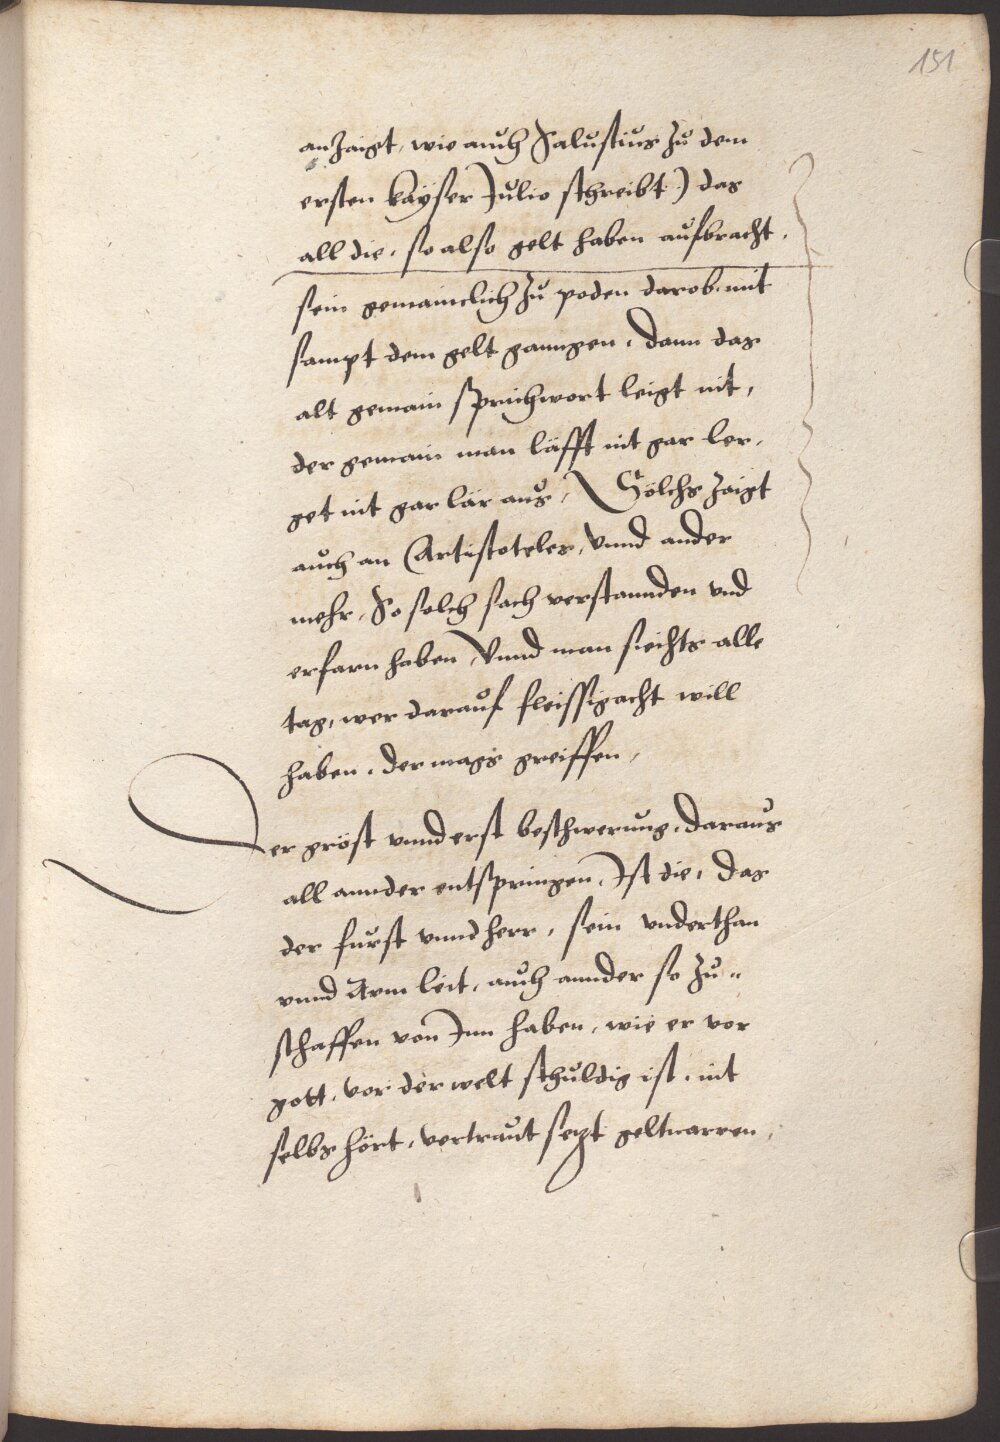 151
anzaigt, wie auch Salustius zu dem
ersten kayser Julio schreibt) das
all die, so also gelt haben aufbracht,
sein gemainclich zu poden darob mit
sampt dem gelt ganngen, dann das
alt gemain sprichwort leigt nit,
der gemain man läßt nit gar ler,
get nit gar lär aus, Sölchs zaigt
auch an Artistoteles, vnnd ander
mehr, So solch sach verstannden vnd
erfarn haben, Vnnd man siechts alle
tag, wer darauf fleissig acht will
haben, der mags greiffen,
Der gröst vnnd erst beschwerung, daraus
all annder entspringen, Ist die, das
der furst vnnd herr, sein vnderthan
vnnd Arm leit, auch annder so zu-
schaffen von Jm haben, wie er vor
gott, vor der welt schuldig ist, nit
selbs hört, vertraut sezt geltnarren,